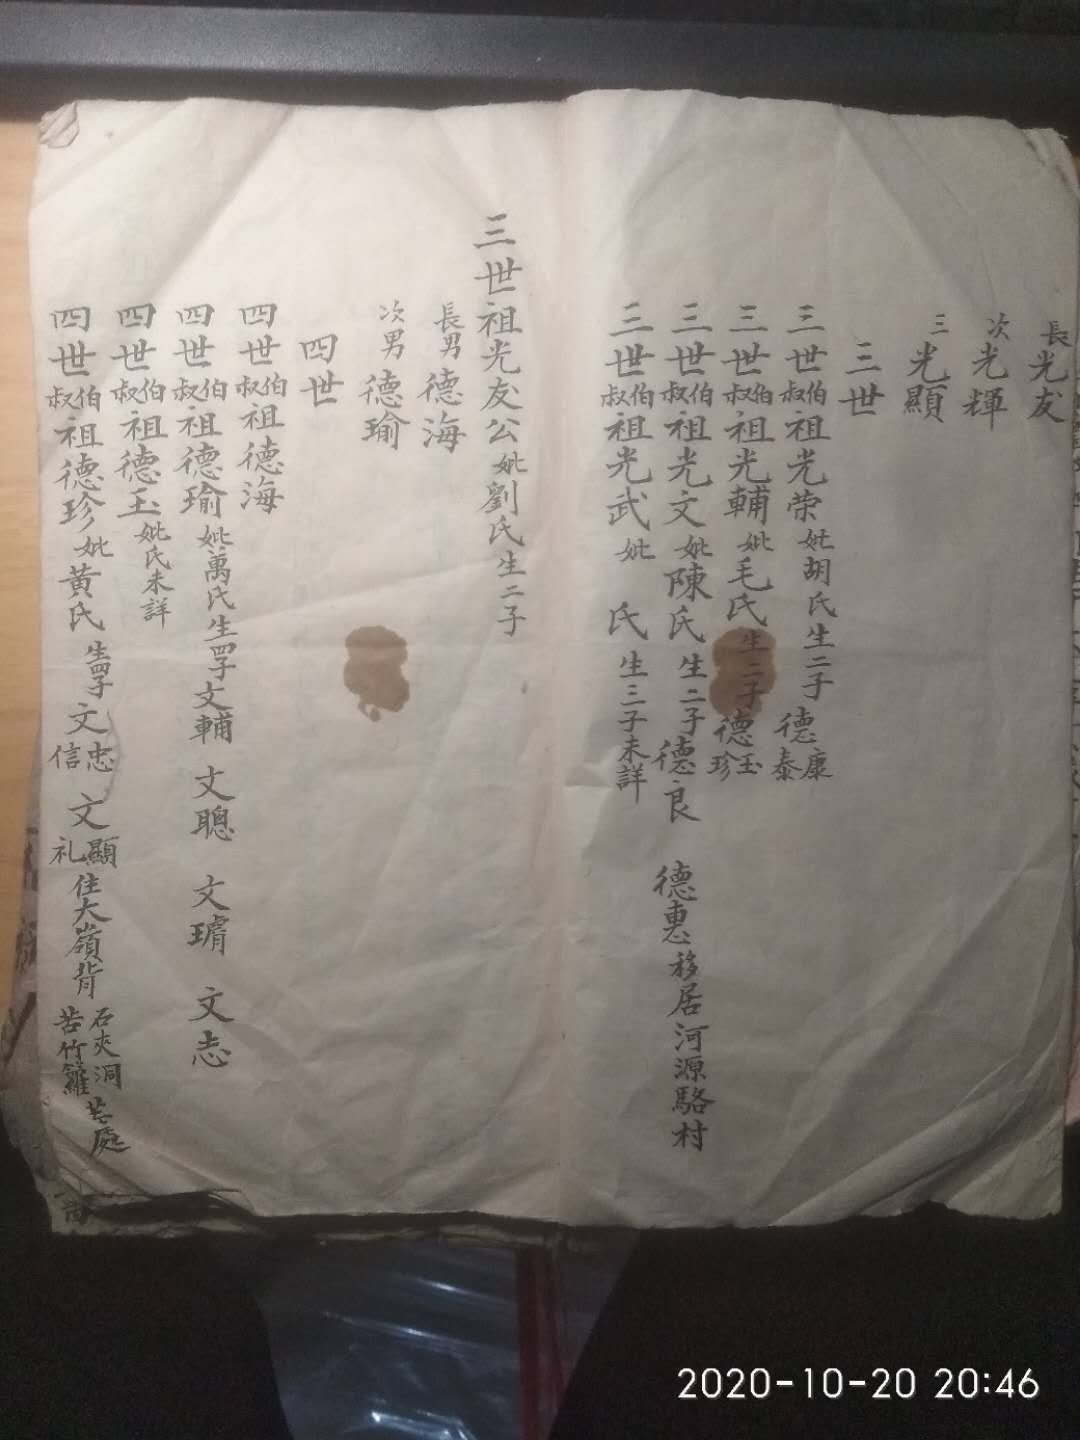 長光友
次光輝
三光顯
三世
三世伯叔祖光荣妣胡氏生二子德康泰
三世伯叔祖光輔妣毛氏生二子德玉珍
三世伯叔祖光文妣陳氏生二子德良 德惠移居河源駱村
三世伯叔祖光武妣 氏生三子未詳
三世祖光友公妣劉氏生二子
長男德海
次男德瑜
四世
四世伯叔祖德海
四世伯叔祖德瑜妣萬氏生四子文輔 文聰 文㻞 文志
四世伯叔祖德玉妣氏未詳
四世伯叔祖德珍妣黃氏生四子文忠信 文顯礼住大嶺背石夾洞苦竹籮等處
2020-10-20 20:46